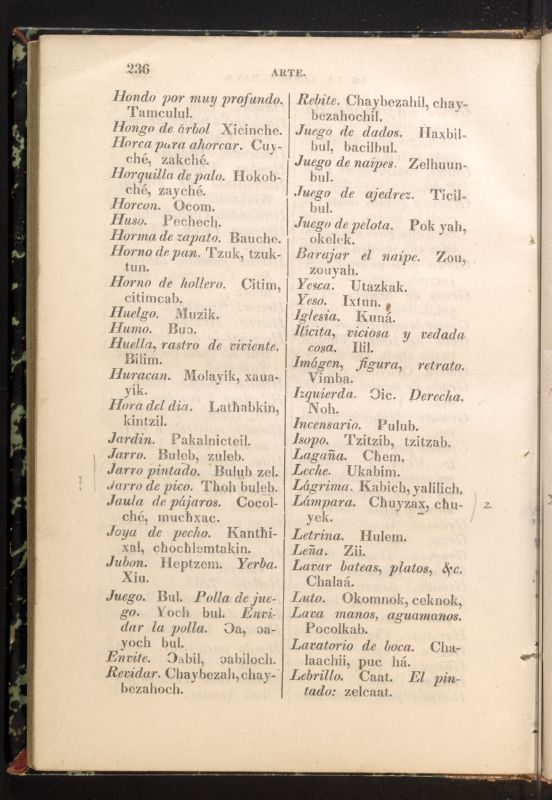 236
ARTE.
Hondo por muy profundo.
Tamculul.
Hongo de árbol Xicinche.
Horca para ahorcar. Cuy-
ché, zakché.
Horquilla de palo. Hokob-
ché, zayché.
Horcon. Ocom.
Huso. Pechech.
Horma de zapato. Bauche.
Horno de pan. Tzuk, tzuk-
tun.
Horno de hollero. Citim,
citimcab.
Huelgo. Muzik.
Humo. Buɔ.
Huella, rastro de viviente.
Bilim.
Huracan. Molayik, xaua-
yik.
Hora del dia. Latħabkin,
kintzil.
Jardin. Pakalnicteil.
Jarro. Buleb, zuleb.
Jarro pintado. Bulub zel.
Jarro de pico. Thoh buleb.
Jaula de pájaros. Cocol-
ché, mucħxac.
Joya de pecho. Kantħi-
xal, chochlemtakin.
Jubon. Heptzem. Yerba.
Xiu.
Juego. Bul. Polla de jue-
go. Yoch bul. Envi-
dar la polla. Ɔa, ɔa-
yoch bul.
Envite. Ɔabil, ɔabiloch.
Revidar. Chaybezah, chay-
bezahoch.
Rebite. Chaybezahil, chay-
bezahochil.
Juego de dados. Haxbil-
bul, bacilbul.
Juego de naipes. Zelhuun-
bul.
Juego de ajedrez. Ticil-
bul.
Juego de pelota. Pok yah,
okelek.
Barajar el naipe. Zou,
zouyah.
Yesca. Utazkak.
Yeso. Ixtun.
Iglesia. Kuná.
Ilícita, viciosa y vedada
cosa. Ilil.
Imágen, figura, retrato.
Vimba.
Izquierda. Ɔic. Derecha.
Noh.
Incensario. Pulub.
Isopo. Tzitzib, tzitzab.
Lagaña. Cħem.
Leche. Ukabim.
Lágrima. Kabich, yalilich.
Lámpara. Cħuyzax, cħu-
yek.
2
Letrina. Hulem.
Leña. Zii.
Lavar bateas, platos, &c.
Chalaá.
Luto. Okomnok, ceknok,
Lava manos, aguamanos.
Pocolkab.
Lavatorio de boca. Cha-
laachii, puc há.
Lebrillo. Caat. El pin-
tado: zelcaat.